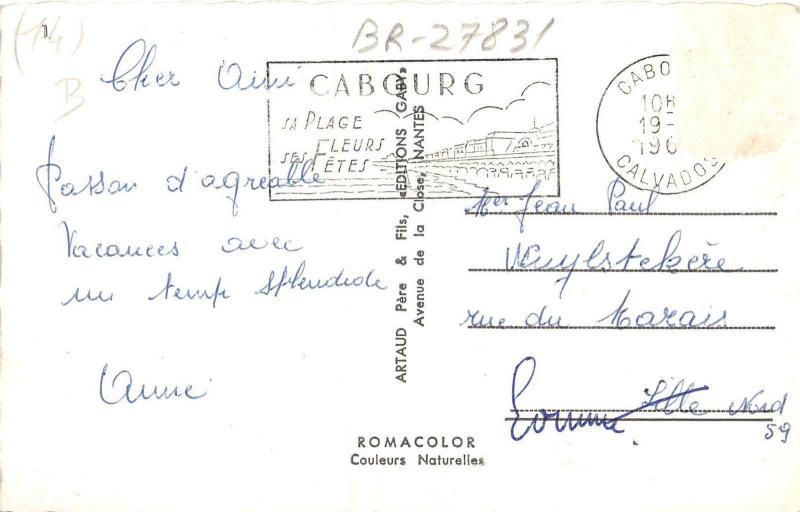 (14)
B
BR-27831
CABOURG
SA PLAGE
SES FLEURS
SES FÊTES
CABO
10H
19-
196
CALVADOS
Cher Ami
Passon d'agréable
Vacances avec
un temp splendide
Anne
ARTAUD Père & Fils, «EDITIONS GABY»
Avenue de la Close, NANTES
Mer Jean Paul
Wuylstekère
rue du Marais
Lomme Lille Nord
59
ROMACOLOR
Couleurs Naturelles